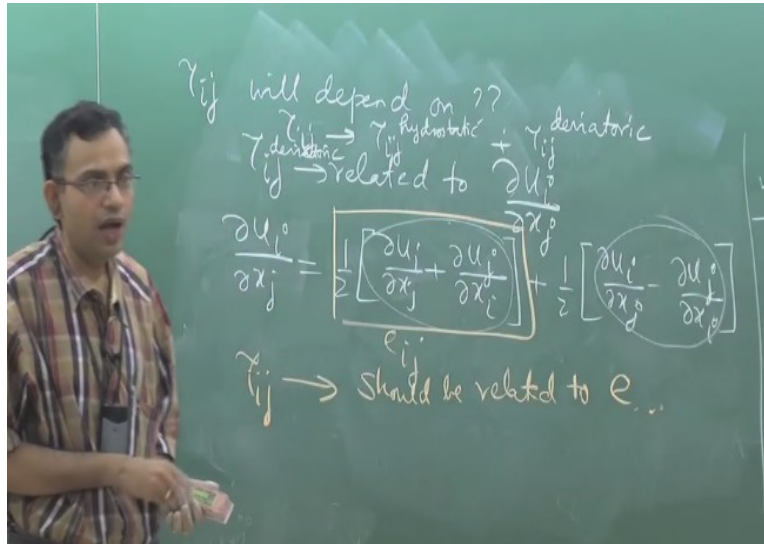 τij will depend on ??
τij → τij hydrostatic + τij deviatoric
τij deviatoric → related to ∂ui/∂xj
∂ui/∂xj = 1/2 [∂uj/∂xj + ∂uj/∂xi] + 1/2 [∂ui/∂xj − ∂uj/∂xi]
eij
τij → should be related to e...